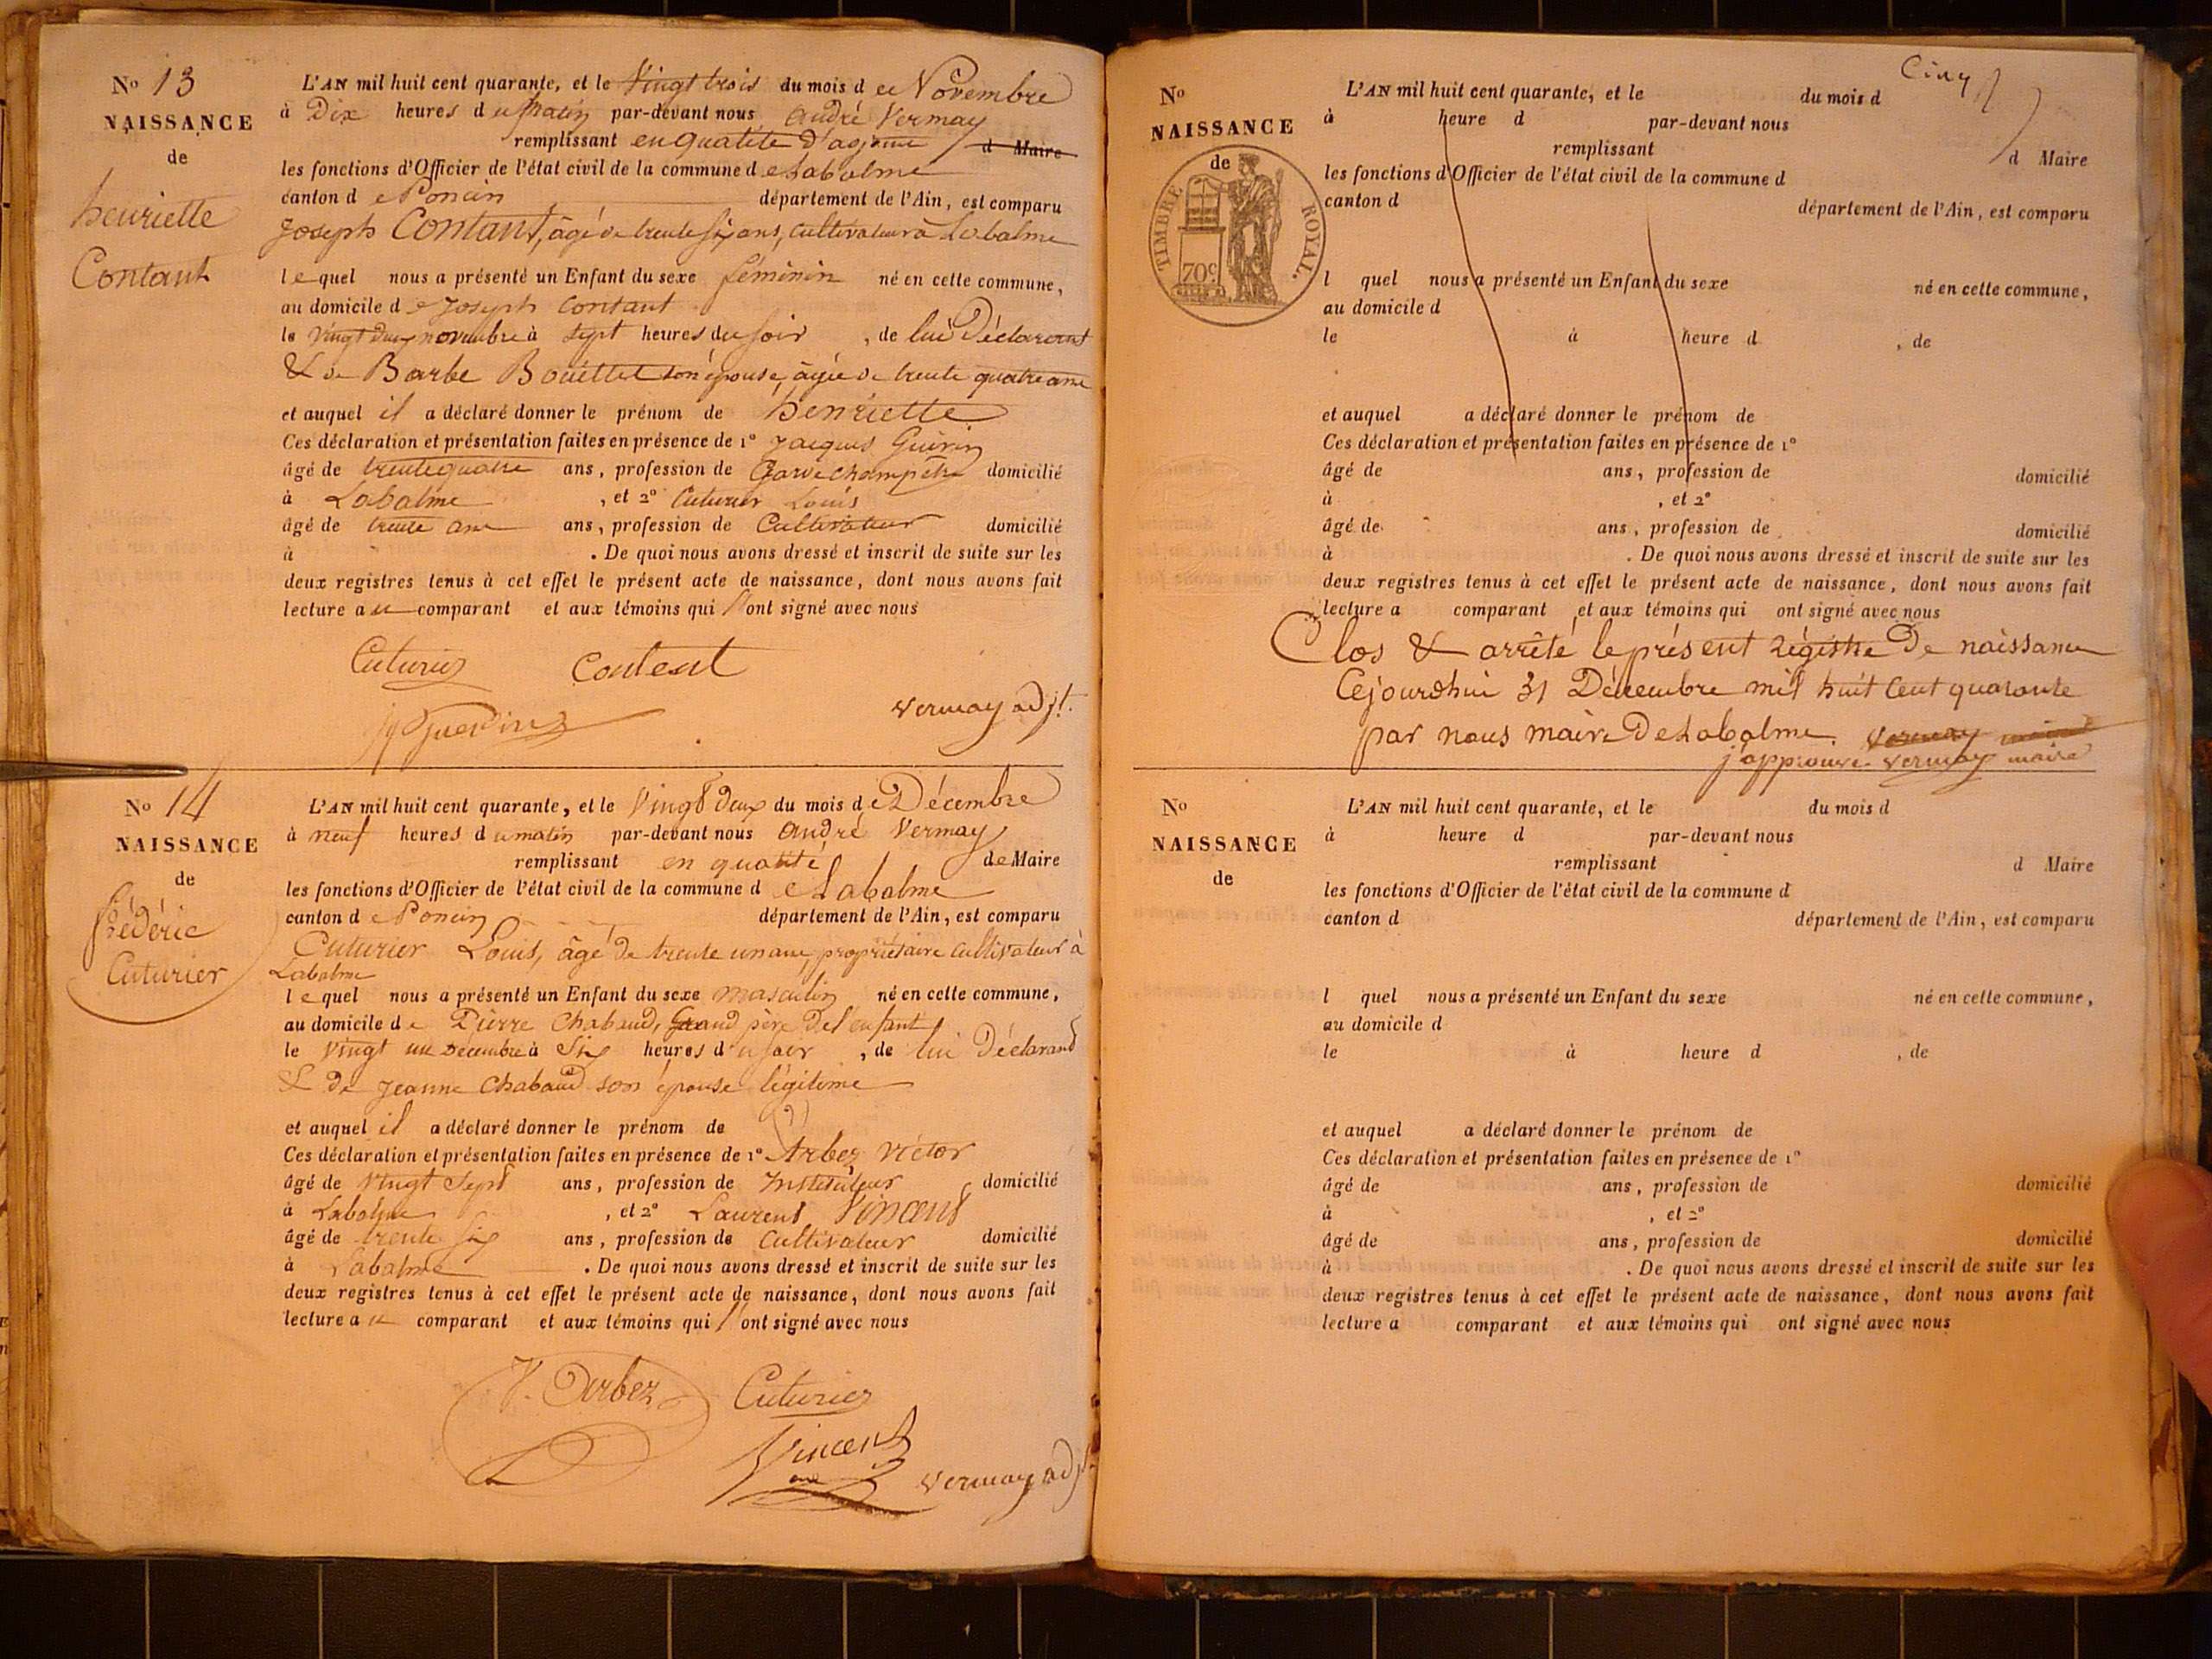 Nº 13
NAISSANCE
de
henriette
Contant
L'AN mil huit cent quarante, et le Vingt trois du mois de Novembre
à Dix heures du matin par-devant nous andré Vermay
remplissant en qualité d'adjoint d Maire
les fonctions d'Officier de l'état civil de la commune de Labalme
canton de Poncin département de l'Ain, est comparu
Joseph Contant, âgé de trente six ans, cultivateur à Labalme
lequel nous a présenté un Enfant du sexe féminin né en cette commune,
au domicile de Joseph Contant
le vingt deux novembre à sept heures du soir, de lui Déclarant
& de Barbe Bouillet son épouse, âgée de trente quatre ans
et auquel il a déclaré donner le prénom de henriette
Ces déclaration et présentation faites en présence de 1º Jacques Guérin
âgé de trente quatre ans, profession de Garde champêtre domicilié
à Labalme, et 2º Cuturier Louis
âgé de trente ans ans, profession de Cultivateur domicilié
à . De quoi nous avons dressé et inscrit de suite sur les
deux registres tenus à cet effet le présent acte de naissance, dont nous avons fait
lecture au comparant et aux témoins qui l'ont signé avec nous
Cuturier Contant
Guérin Vermay adjt.
Nº 14
NAISSANCE
de
frédéric
Cuturier
L'AN mil huit cent quarante, et le Vingt deux du mois de Décembre
à neuf heures du matin par-devant nous andré Vermay
remplissant en qualité de Maire
les fonctions d'Officier de l'état civil de la commune de Labalme
canton de Poncin département de l'Ain, est comparu
Cuturier Louis, âgé de trente un ans, propriétaire cultivateur à
Labalme
lequel nous a présenté un Enfant du sexe masculin né en cette commune,
au domicile de Pierre Chabaud, Grand père de l'enfant
le vingt un Décembre à Six heures du soir, de lui Déclarant
& de Jeanne Chabaud son épouse légitime
et auquel il a déclaré donner le prénom de
Ces déclaration et présentation faites en présence de 1º Arbez Victor
âgé de Vingt Sept ans, profession de Instituteur domicilié
à Labalme, et 2º Laurent Vincent
âgé de trente six ans, profession de Cultivateur domicilié
à Labalme. De quoi nous avons dressé et inscrit de suite sur les
deux registres tenus à cet effet le présent acte de naissance, dont nous avons fait
lecture au comparant et aux témoins qui l'ont signé avec nous
V. Arbez Cuturier
Vincent Vermay adjt
Cinq
Nº
NAISSANCE
de
TIMBRE ROYAL.
70 c
L'AN mil huit cent quarante, et le du mois d
à heure d par-devant nous
remplissant d Maire
les fonctions d'Officier de l'état civil de la commune d
canton d département de l'Ain, est comparu
l quel nous a présenté un Enfant du sexe né en cette commune,
au domicile d
le à heure d , de
et auquel a déclaré donner le prénom de
Ces déclaration et présentation faites en présence de 1º
âgé de ans, profession de domicilié
à , et 2º
âgé de ans, profession de domicilié
à . De quoi nous avons dressé et inscrit de suite sur les
deux registres tenus à cet effet le présent acte de naissance, dont nous avons fait
lecture a comparant et aux témoins qui ont signé avec nous
Clos & arrêté le présent régistre de naissance
Cejourdhui 31 Décembre mil huit cent quarante
par nous maire de Labalme. Vermay maire
j'approuve Vermay maire
Nº
NAISSANCE
de
L'AN mil huit cent quarante, et le du mois d
à heure d par-devant nous
remplissant d Maire
les fonctions d'Officier de l'état civil de la commune d
canton d département de l'Ain, est comparu
l quel nous a présenté un Enfant du sexe né en cette commune,
au domicile d
le à heure d , de
et auquel a déclaré donner le prénom de
Ces déclaration et présentation faites en présence de 1º
âgé de ans, profession de domicilié
à , et 2º
âgé de ans, profession de domicilié
à . De quoi nous avons dressé et inscrit de suite sur les
deux registres tenus à cet effet le présent acte de naissance, dont nous avons fait
lecture a comparant et aux témoins qui ont signé avec nous